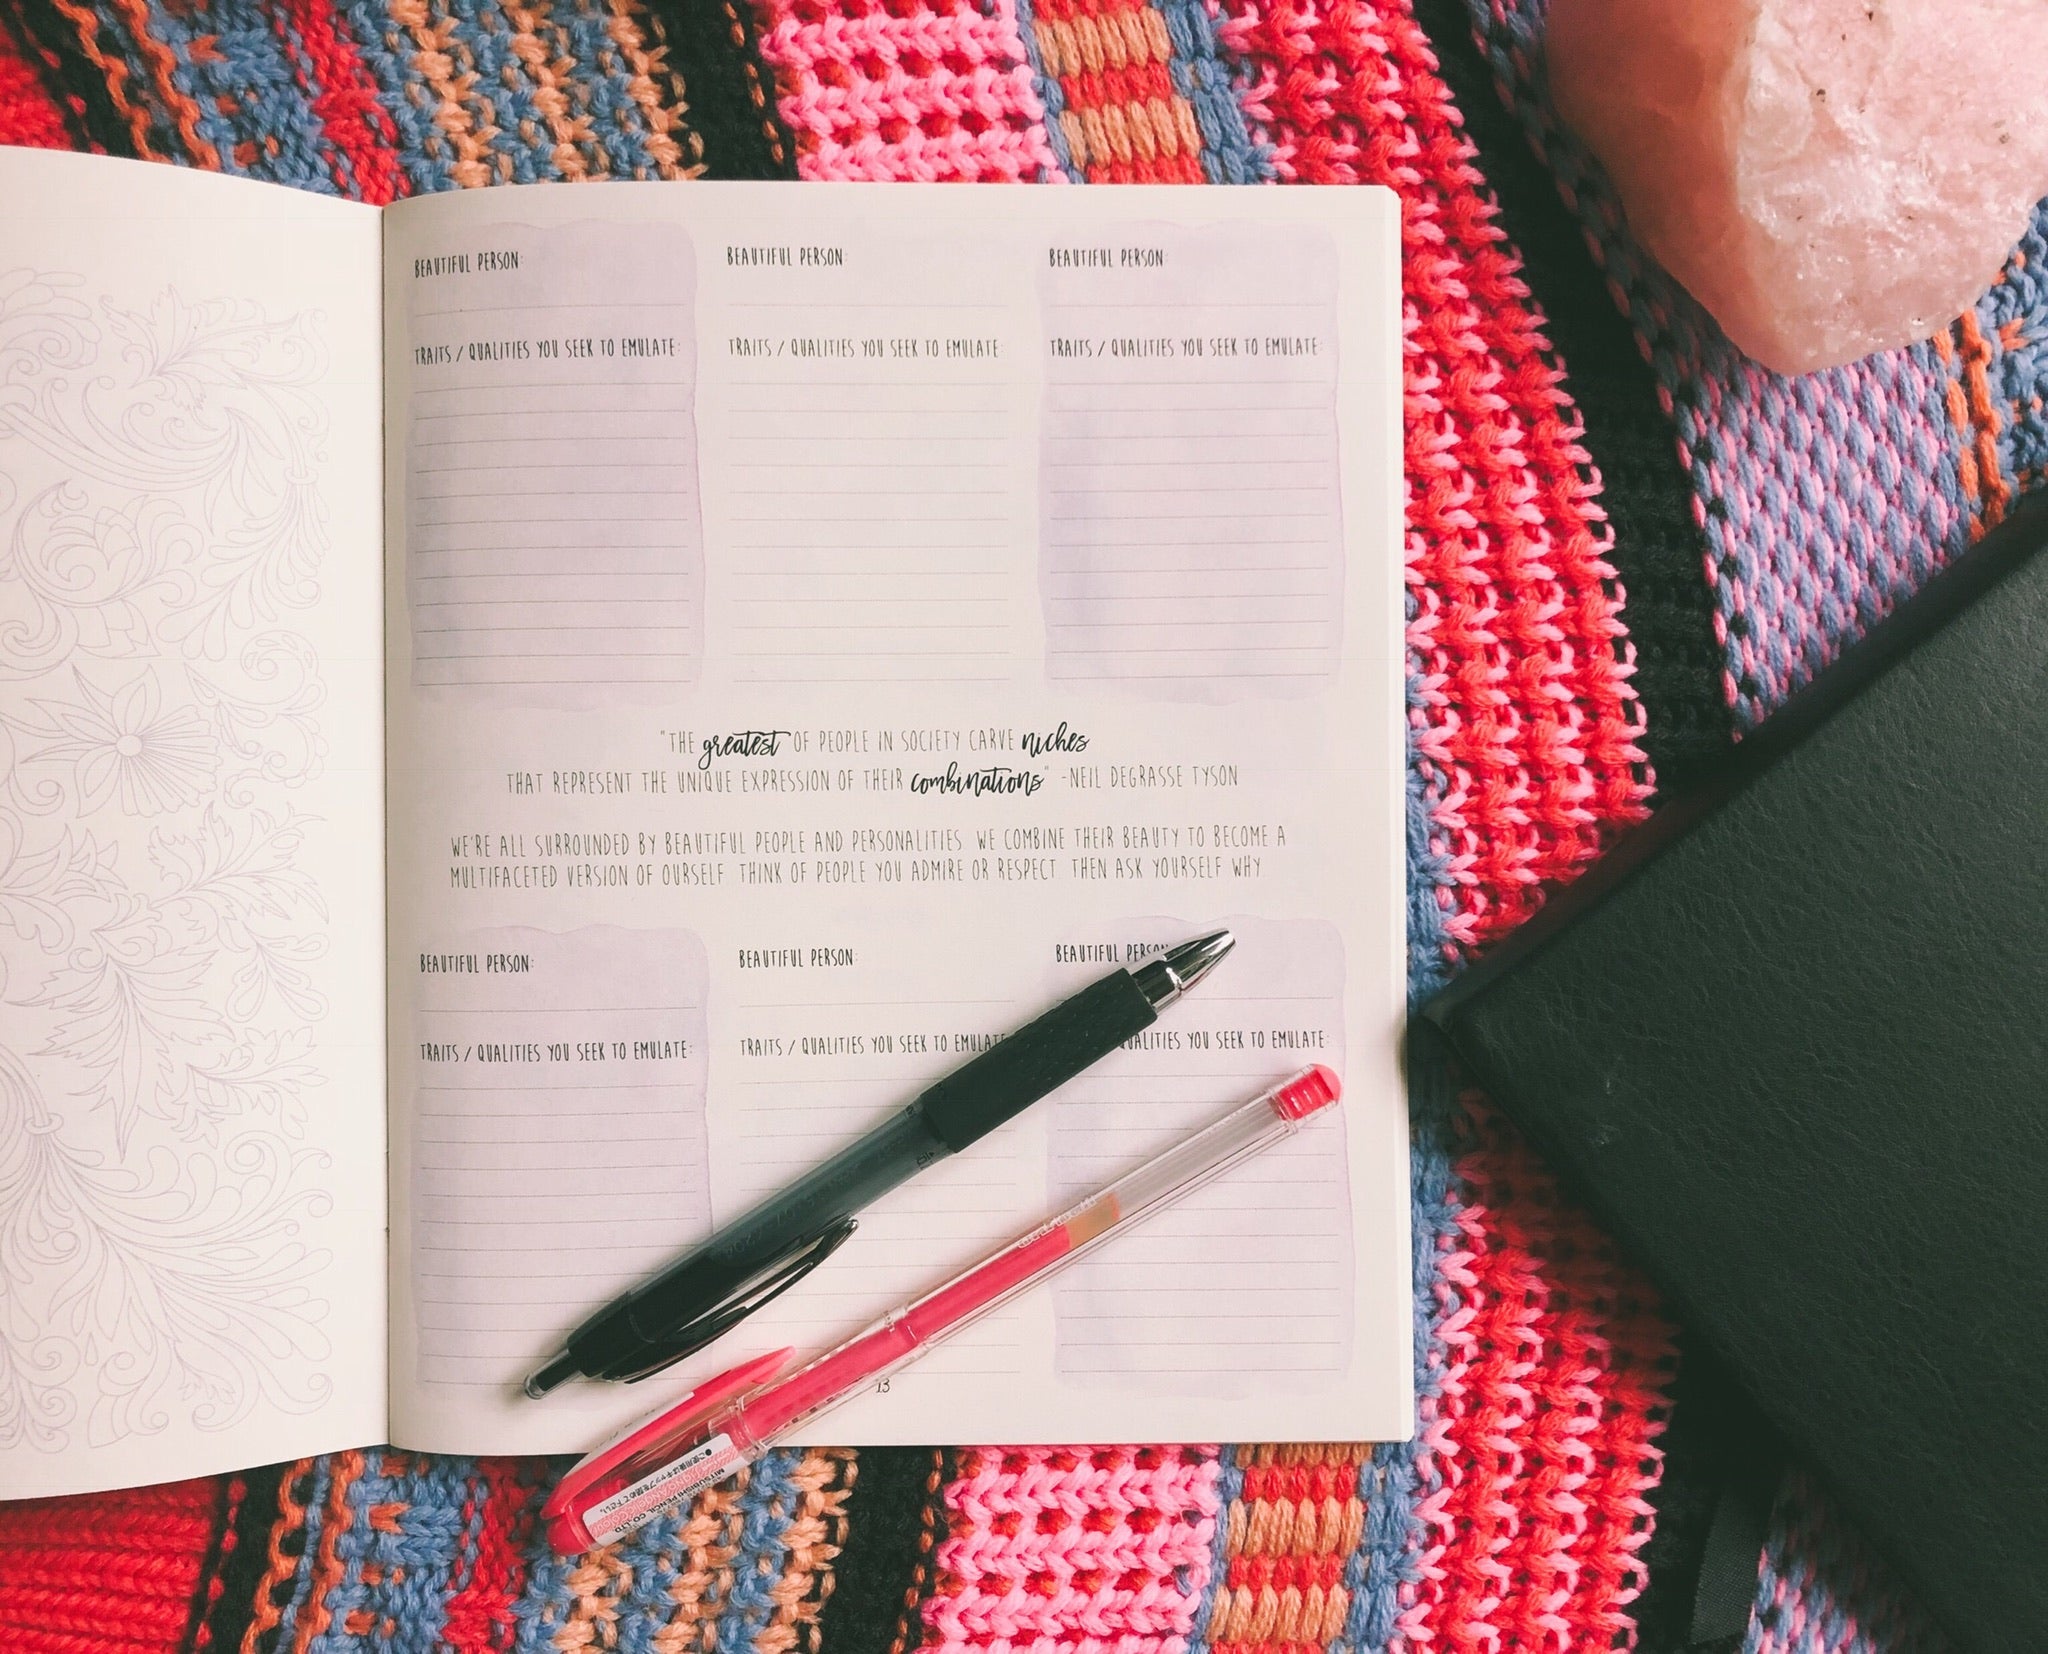 BEAUTIFUL PERSON:
BEAUTIFUL PERSON:
BEAUTIFUL PERSON:
TRAITS / QUALITIES YOU SEEK TO EMULATE:
TRAITS / QUALITIES YOU SEEK TO EMULATE:
TRAITS / QUALITIES YOU SEEK TO EMULATE:
"THE greatest OF PEOPLE IN SOCIETY CARVE niches
THAT REPRESENT THE UNIQUE EXPRESSION OF THEIR combinations" -NEIL DEGRASSE TYSON
WE'RE ALL SURROUNDED BY BEAUTIFUL PEOPLE AND PERSONALITIES. WE COMBINE THEIR BEAUTY TO BECOME A
MULTIFACETED VERSION OF OURSELF. THINK OF PEOPLE YOU ADMIRE OR RESPECT. THEN ASK YOURSELF WHY.
BEAUTIFUL PERSON:
BEAUTIFUL PERSON:
BEAUTIFUL PERSON
TRAITS / QUALITIES YOU SEEK TO EMULATE:
TRAITS / QUALITIES YOU SEEK TO EMULATE
QUALITIES YOU SEEK TO EMULATE:
13
MITSUBISHI PENCIL CO., LTD